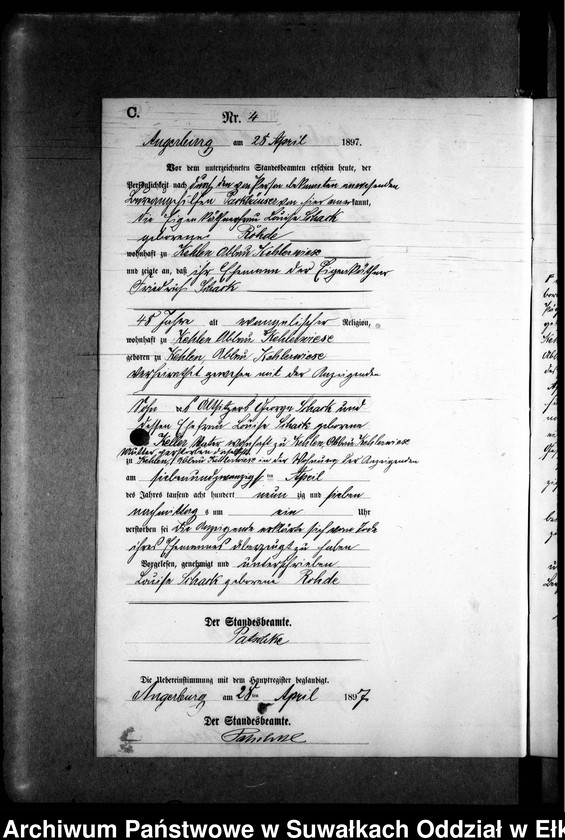 C.
Nr. 4
Angerburg am 28 April 1897.
Vor dem unterzeichneten Standesbeamten erschien heute, der
Persönlichkeit nach durch den von Person bekannten anwesenden
Bureaugehilfen Packhäuser von hier anerkannt,
die Eigenkäthnerfrau Louise Schark
geborene Rohde
wohnhaft zu Kehlen Abbau Kehlerwiese
und zeigte an, daß ihr Ehemann der Eigenkäthner
Friedrich Schark
48 Jahre alt evangelischer Religion,
wohnhaft zu Kehlen Abbau Kehlerwiese
geboren zu Kehlen, Abbau Kehlerwiese
verheirathet gewesen mit der Anzeigenden
Sohn des Altsitzers George Schark und
dessen Ehefrau Louise Schark geborene
Keller, Vater wohnhaft zu Kehlen, Abbau Kehlerwiese
Mutter verstorben daselbst
zu Kehlen, Abbau Kehlerwiese in der Wohnung der Anzeigenden
am siebenundzwanzigsten April
des Jahres tausend acht hundert neun zig und sieben
nachmittags um ein Uhr
verstorben sei Die Anzeigende erklärte sich vom Tode
ihres Ehemannes überzeugt zu haben
Vorgelesen, genehmigt und unterschrieben
Louise Schark geborene Rohde
Der Standesbeamte.
Patschke
Die Uebereinstimmung mit dem Hauptregister beglaubigt.
Angerburg am 28ten April 1897
Der Standesbeamte.
Patschke
Archiwum Państwowe w Suwałkach Oddział w Ełk